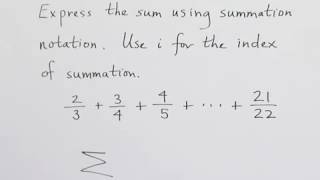 Express the sum using summation
notation. Use i for the index
of summation.
2/3 + 3/4 + 4/5 + ··· + 21/22
Σ